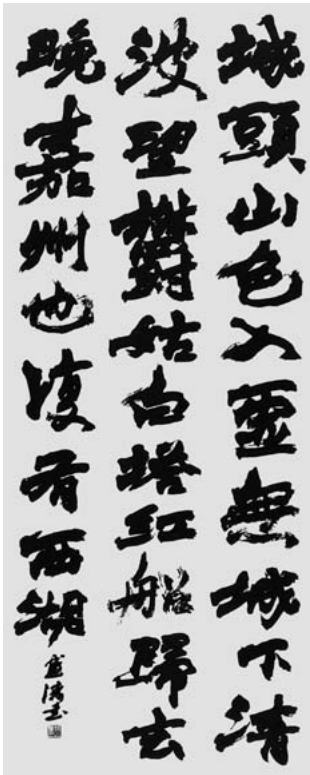 城頭山色入虛無城下清
波望鬱姑白塔紅船歸去
晚嘉州也復有西湖